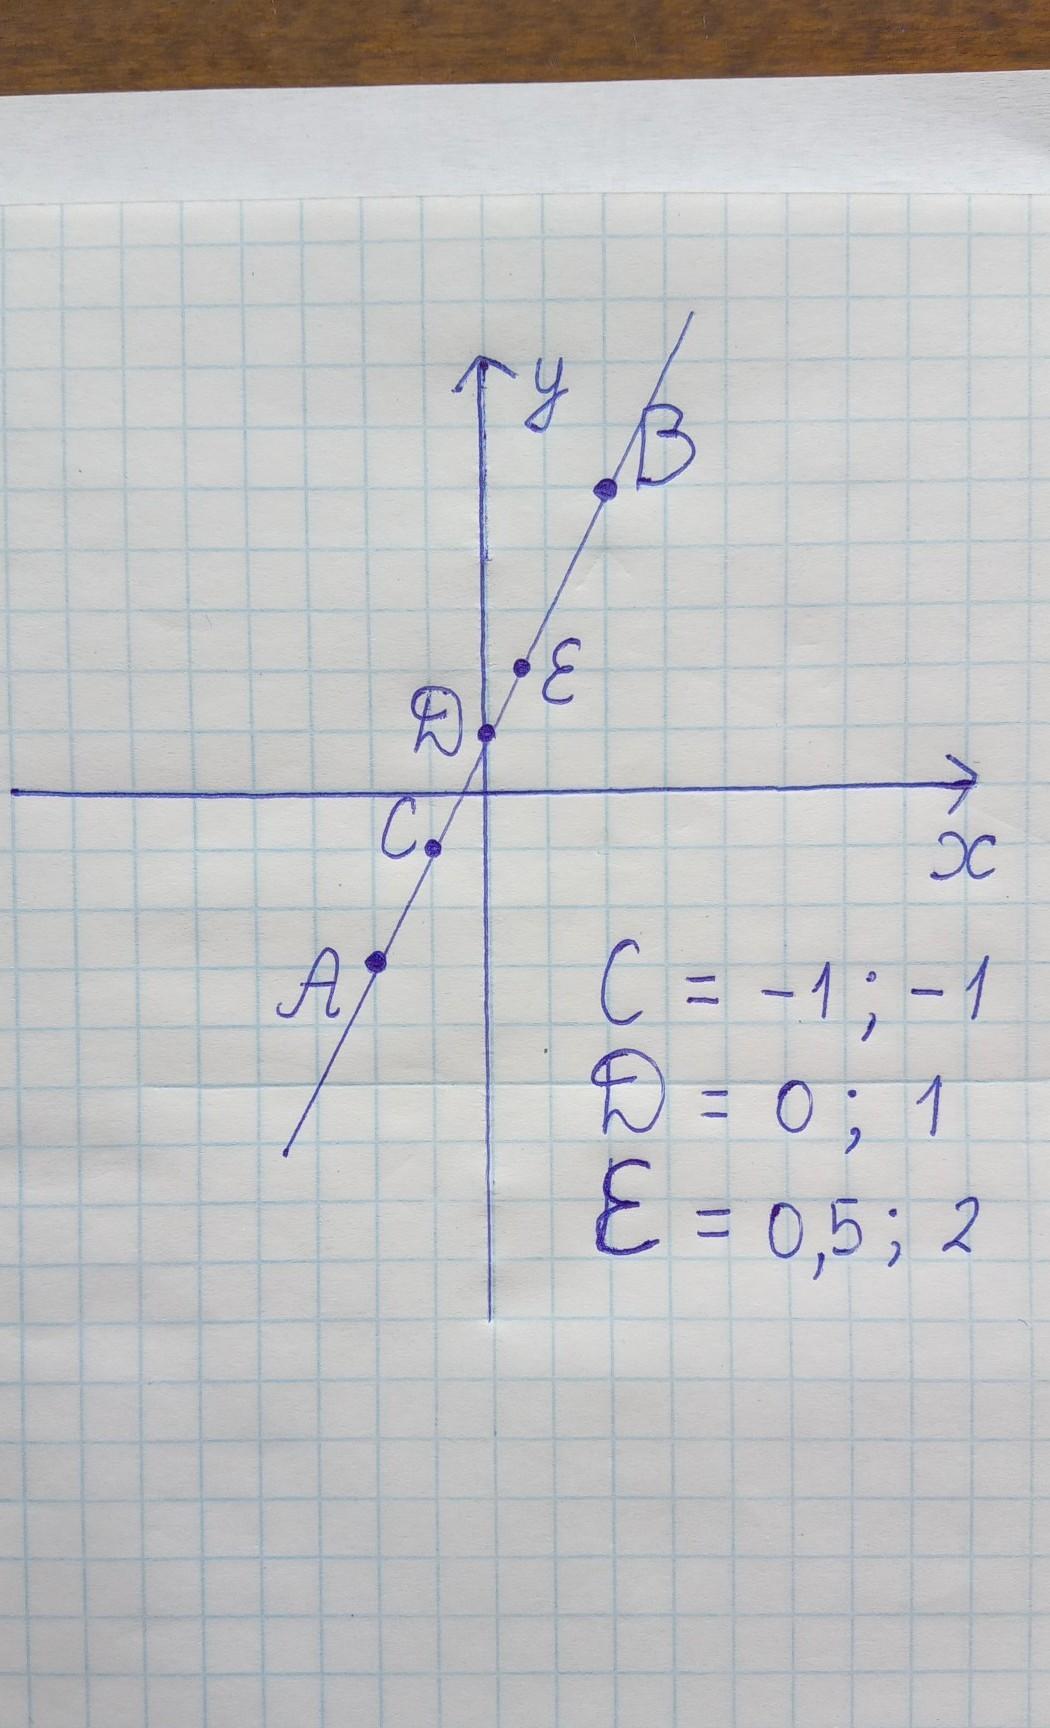 y
B
E
D
C
x
A
C = -1; -1
D = 0; 1
E = 0,5; 2